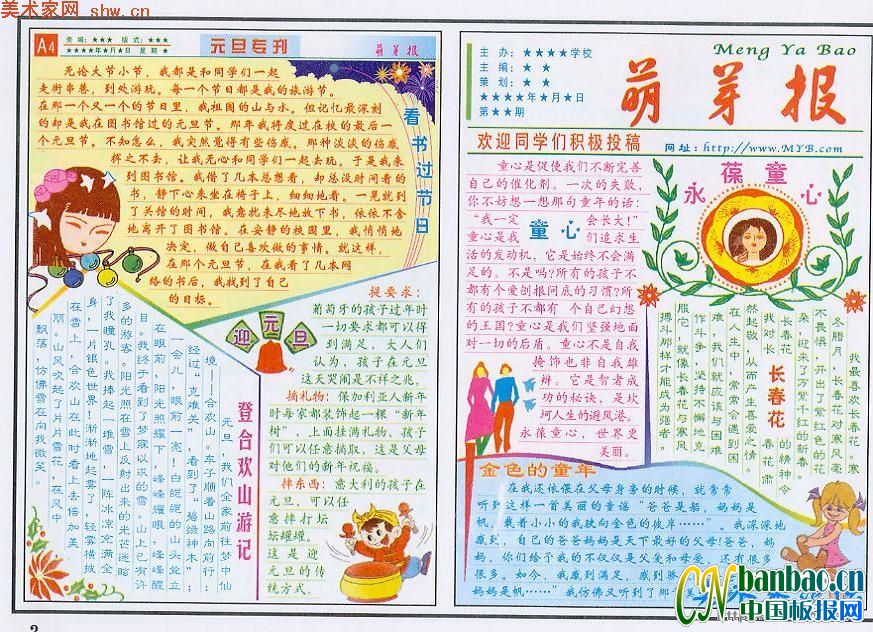 美术家网 shw.cn
A4
责编：★★★ 版式：★★★
★★★★年★月★日 星期★
元旦专刊
萌芽报
无论大节小节，我都是和同学们一起
走街串巷，到处游玩。每一个节日都是我的旅游节。
在那一个又一个的节日里，我祖国的山与水。但记忆最深刻
的却是我在图书馆过的元旦节。那年我将度过在校的最后一
个元旦节。不知怎么，我突然觉得有些伤感。那种淡淡的伤感
挥之不去，让我无心和同学们一起去玩。于是我来
到图书馆。我借了几本总想看，却总没时间看的
书，静下心来坐在椅子上，细细地看。一晃就到
了关馆的时间，我意犹未尽地放下书，依依不舍
地离开了图书馆。在安静的校园里，我悄悄地
决定，做自己喜欢做的事情。就这样，
在那个元旦节，在我看了几本网
络的书后，我找到了自己
的目标。
看书过节日
登合欢山游记
元旦，我们全家前往梦中仙
境——合欢山。车子顺着山路向前行：
经过“克难关”，看到了“碧绿神木”；
一会儿，眼前一亮！白皑皑的山头耸立
在眼前，阳光照耀下，峰峰耀眼，峰峰醒
目。我终于看到了梦寐以求的雪。山上已有许
多的游客。阳光照在雪上反射出来的光芒迷眩
了我瞳孔。我捧起一堆雪，一阵冰凉充满全
身，一片银色世界！渐渐地起雾了，轻雾横披
在雪上，合欢山在此时看上去倍加美
丽。山风吹起了片片雪花，在风中
飘荡，仿佛雪在向我微笑。
迎元旦
提要求：
葡萄牙的孩子过年时
一切要求都可以得
到满足，大人们
认为，孩子在元旦
这天哭闹是不祥之兆。
摘礼物：保加利亚人新年
时每家都装饰起一棵“新年
树”，上面挂满礼物，孩子
们可以任意摘取，这是父母
对他们的新年祝福。
摔东西：意大利的孩子在
元旦，可以任
意摔打坛
坛罐罐。
这是迎
元旦的传
统方式。
2
主办：★★★★学校
主编：★★
策划：★★
★★★★年★月★日
第★★期
Meng Ya Bao
萌芽报
欢迎同学们积极投稿
网址：http://www.MYB.com
童心是促使我们不断完善
自己的催化剂。一次的失败，
你不妨想一想那句童年的话：
“我一定会长大！”
童心是我们追求生
活的发动机，它是始终不会满
足的。不是吗？所有的孩子不
都有个爱刨根问底的习惯？所
有的孩子不都有个自己幻想
的王国？童心是我们坚强地面
对一切的后盾。童心不是自我
掩饰也非自我雄
辩。它是智者成
功的秘诀，是坎
坷人生的避风港。
永葆童心，世界更
美丽。
童心
永葆童心
长春花
我最喜欢长春花。寒
冬腊月，长春花对寒风毫
不畏惧，开出了紫红色的花
朵，迎来了万紫千红的新春。
长春花的精神令
我对长春花肃
然起敬，从而产生喜爱之情。
在人生中，常常会遇到困
难，我们就应该与困难
作斗争，坚持不懈地克
服它，就像长春花与寒风
搏斗那样才能成为强者。
金色的童年
在我还依偎在父母身旁的时候，就常常
听到这样一首美丽的童谣“爸爸是船，妈妈是
帆，载着小小的我驶向金色的彼岸……”。我深深地
感到，自己的爸爸妈妈是天下最好的父母！爸爸，妈
妈，你们给予我的不仅仅是父爱和母爱，还有很多
很多。如今，我感到满足，感到
妈妈是帆……”我仿佛又听到了那
CN banbao.cn
中国板报网